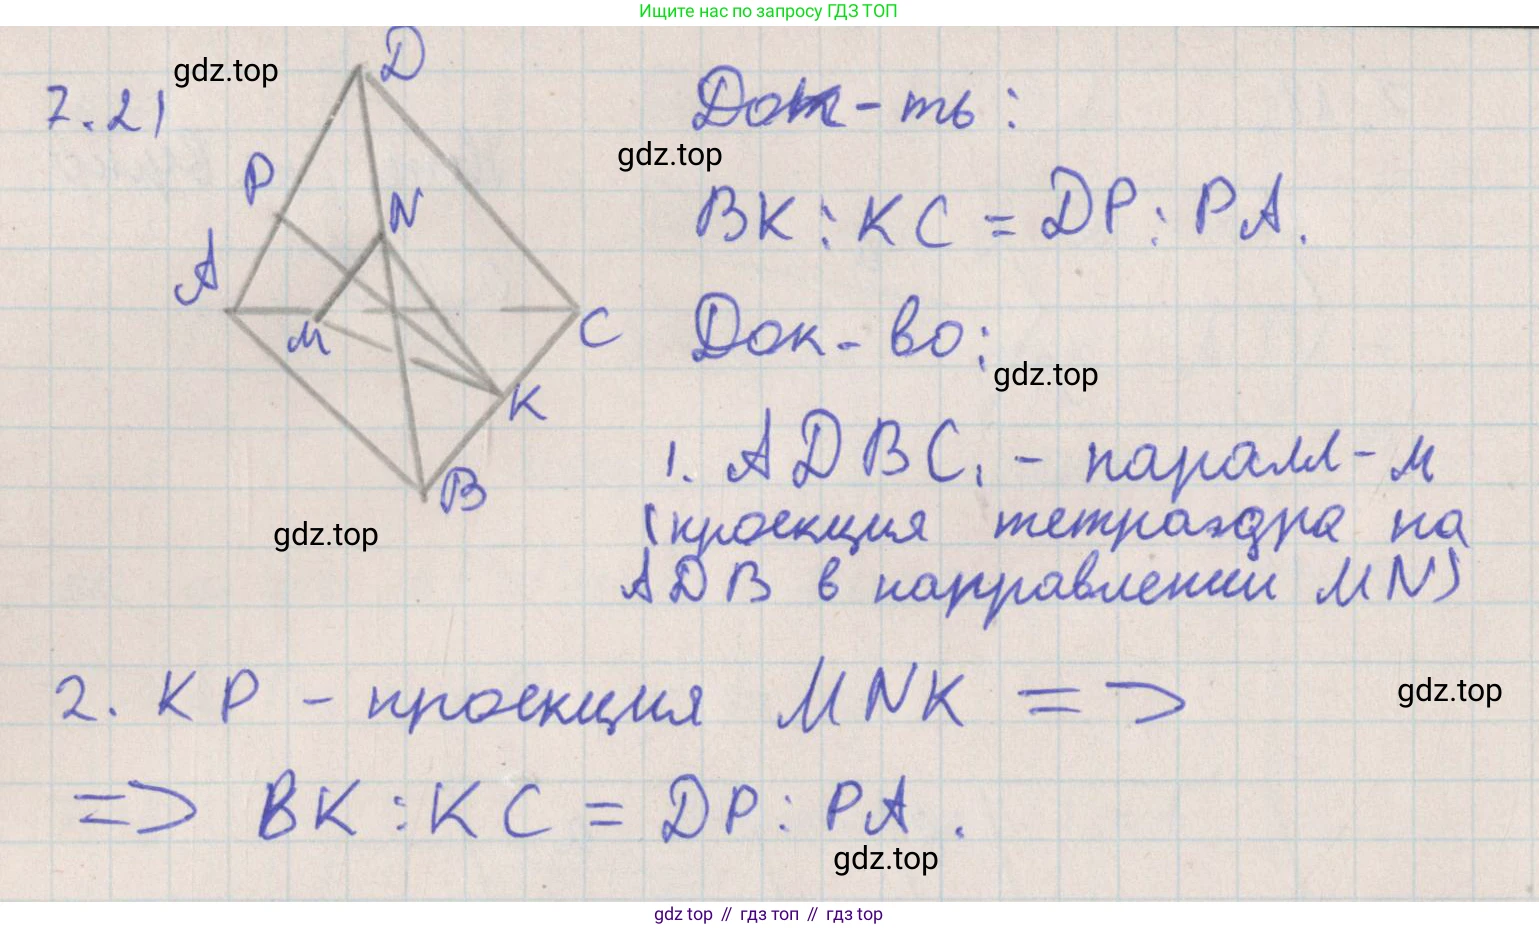 Ищите нас по запросу ГДЗ ТОП
gdz.top
7.21
D
P
N
A
M
C
K
B
gdz.top
Док-ть:
gdz.top
BK : KC = DP : PA.
Док-во:
gdz.top
1. ADBC₁ - паралл-м
(проекция тетраэдра на
ADB в направлении MN)
2. KP - проекция MNK =>
gdz.top
=> BK : KC = DP : PA.
gdz.top
gdz top // гдз топ // gdz top